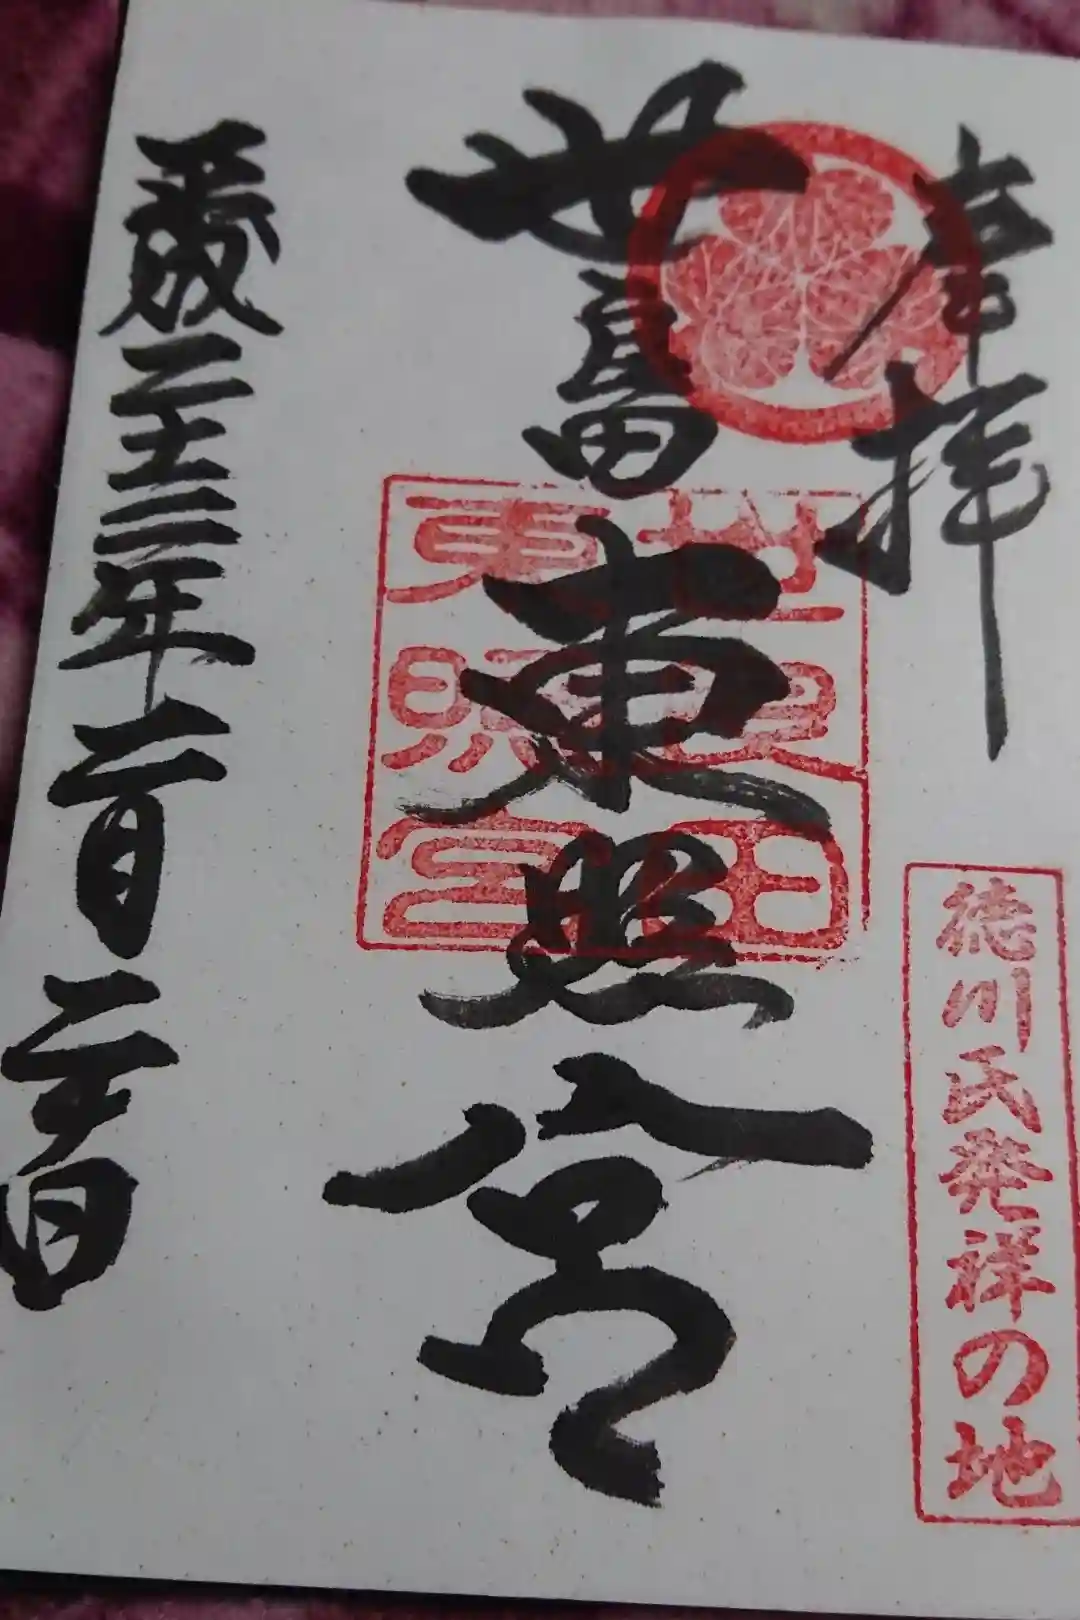 奉拝
徳川氏発祥の地
世良田東照宮
世良田
東照宮
平成二十三年二月